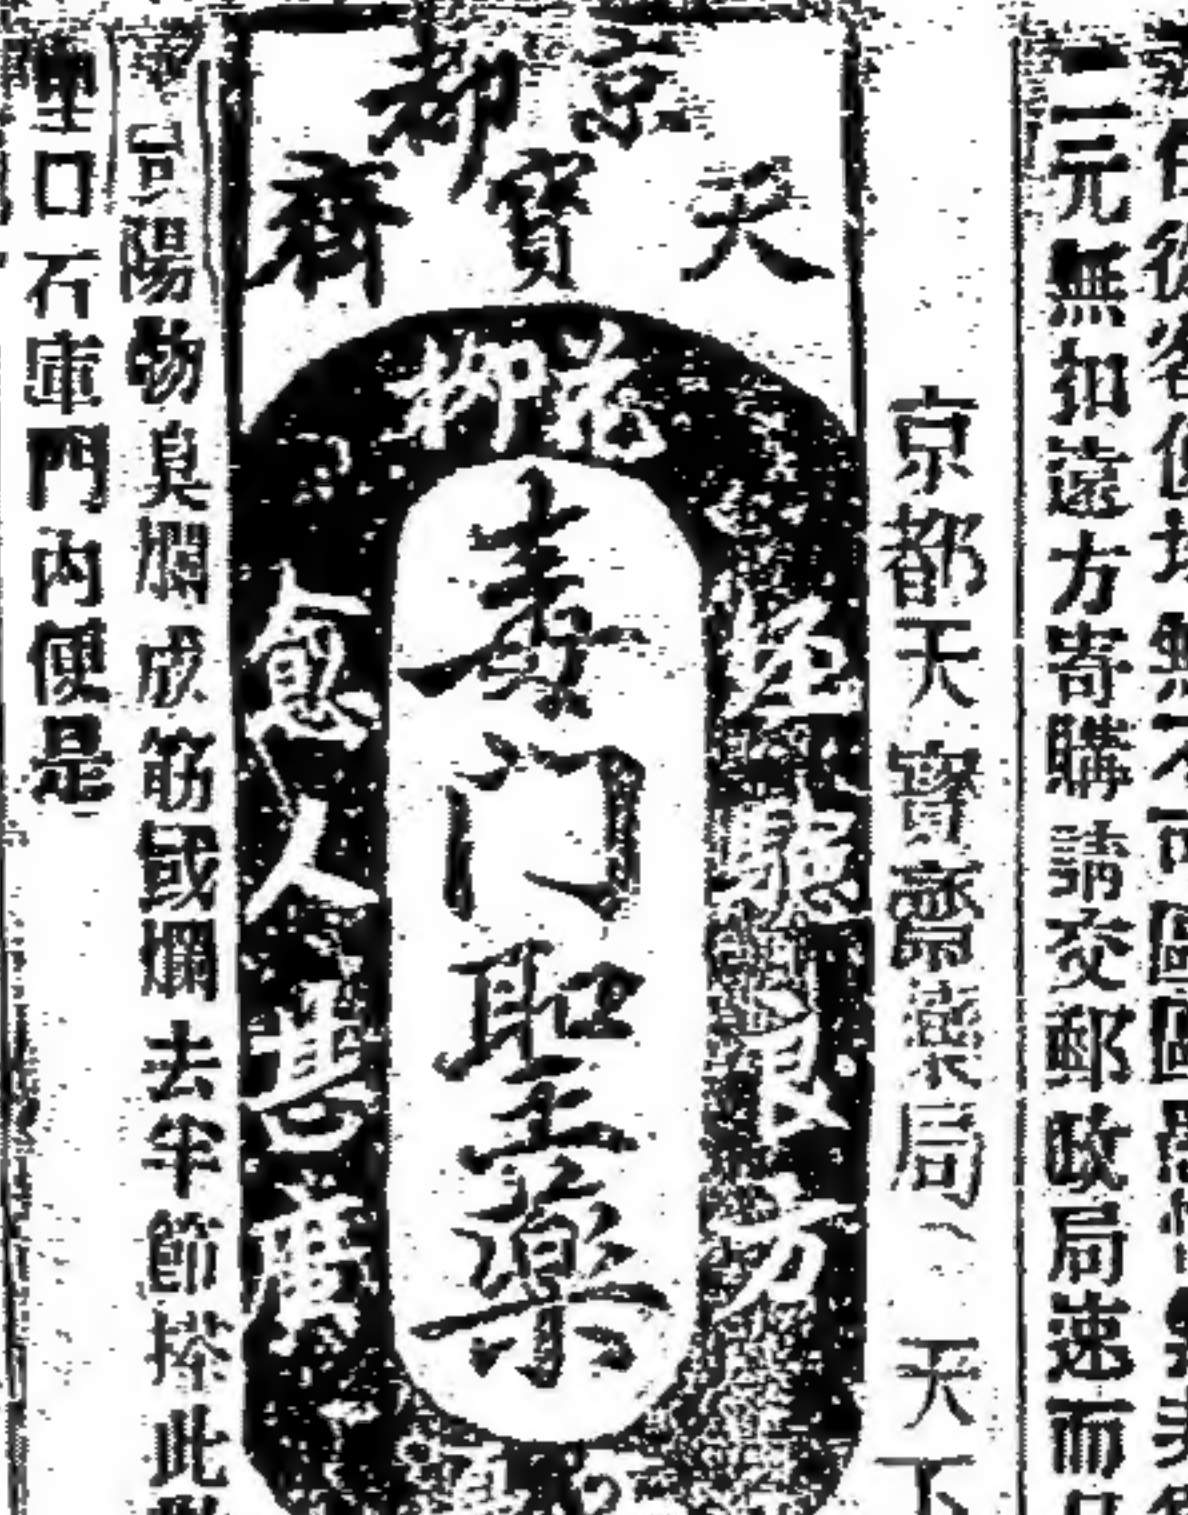 從容便坊無不可
二元無扣遠方寄購請交郵政局速而
京都天寶齋藥局
天下
京都
天寶齋
花柳
經驗良方
專門聖藥
愈人甚廣
陽物臭爛成筋或爛去半節搽此
口石庫門內便是